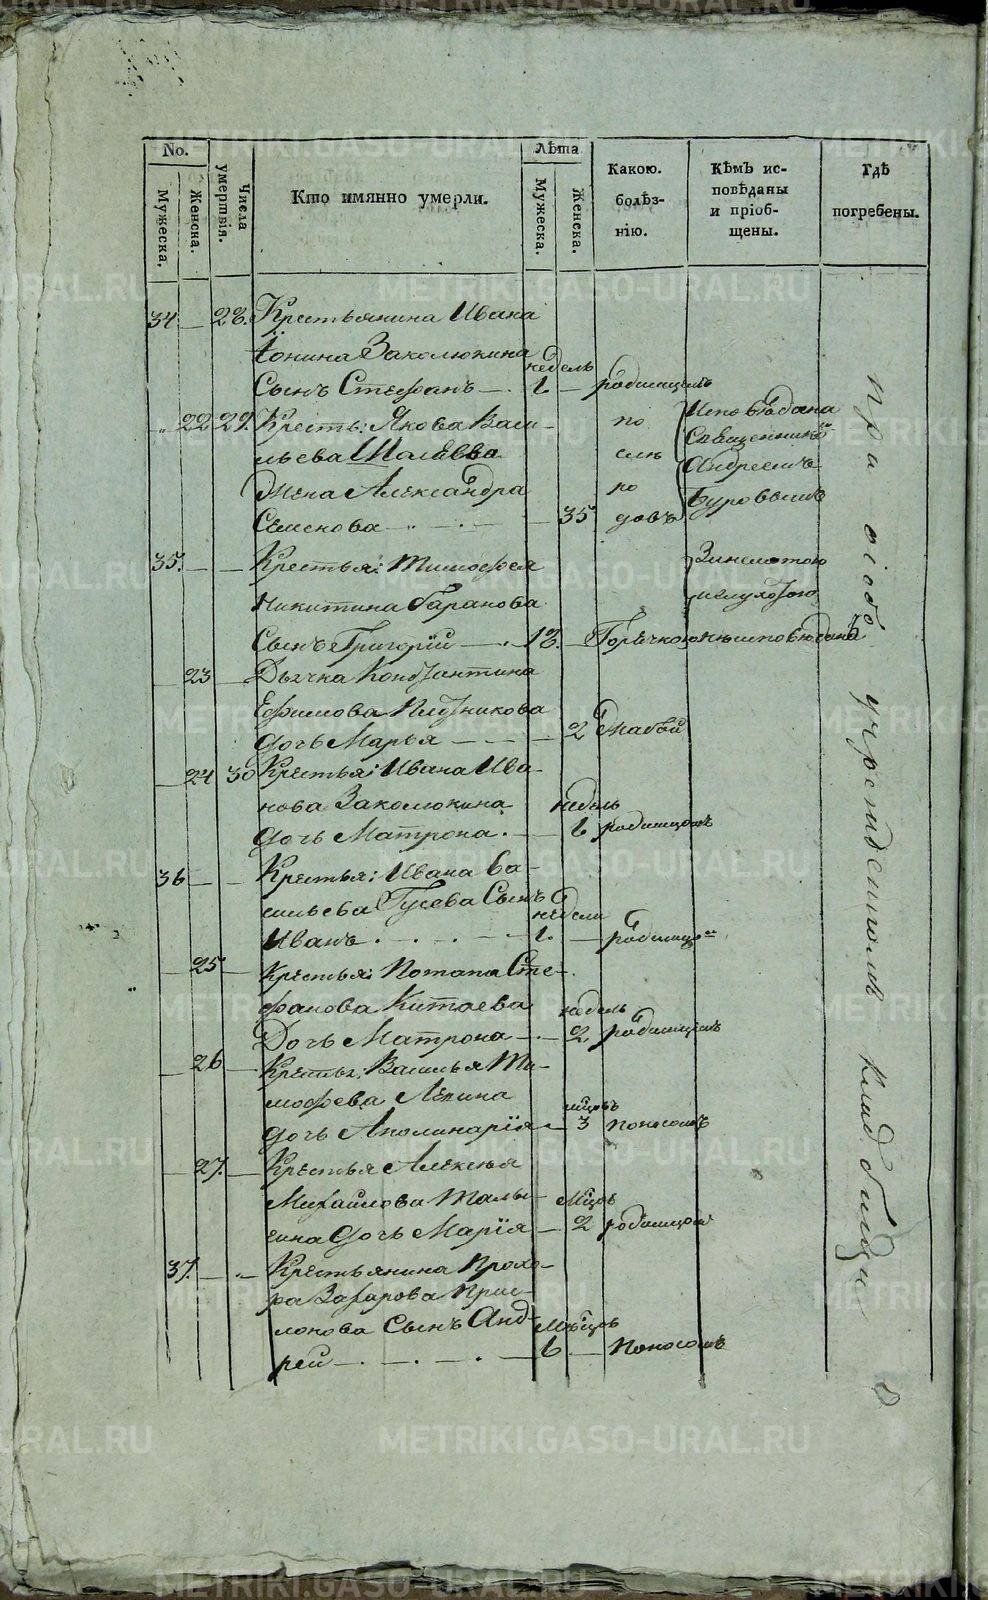 No.
Мужеска.
Женска.
Числа умертвія.
Кто имянно умерли.
Лѣта
Мужеска.
Женска.
Какою. болѣз- нію.
Кѣмъ ис- повѣданы и пріоб- щены.
Гдѣ погребены.
34 — 28. Крестьянина Ивана
Іонина Заколюкина
недель
Сынъ Стефанъ — 1 — родимцемъ
„ 22 29. Кресть: Якова Васи-
льева Шалѣвва
Жена Александра
Семенова — 35
по
слѣ
ро
довъ
Исповѣдана
Священникомъ
Андреемъ
Буровымъ
35. — — Крестья: Тимофея
Никитина Таранова
Сынъ Григорій — 13. — Горячкою
За немотою
и глухотою
не исповѣданъ
— 23 — Дьячка Константина
Ефимова Плотникова
дочь Марья — — — 2 Слабой
— 24 30 Крестья: Ивана Ива-
нова Заколюкина
недель
дочь Матрона. — 6 родимцомъ
36 — — Крестья: Ивана Ва-
сильева Гусева Сынъ
недели
Иванъ — 1. — родимцо
— 25 — Крестья: Потапа Сте-
фанова Китаева
недель
Дочь Матрона — 2. родимцемъ
— 26 — Кресть: Василья Ти-
мофеева Лепина
мцовъ
дочь Аполинарія — 3 Поносомъ
— 27. — Крестья Алексея
Михайлова Талы-
Мцов
гина дочь Марія — 2 родимцом
37. — „ Крестьянина Прохо-
ра Захарова При-
лонова Сынъ Анд-
Мѣцовъ
рей — . — . — 6 — Поносомъ
при особо учрежденномъ кладбищѣ